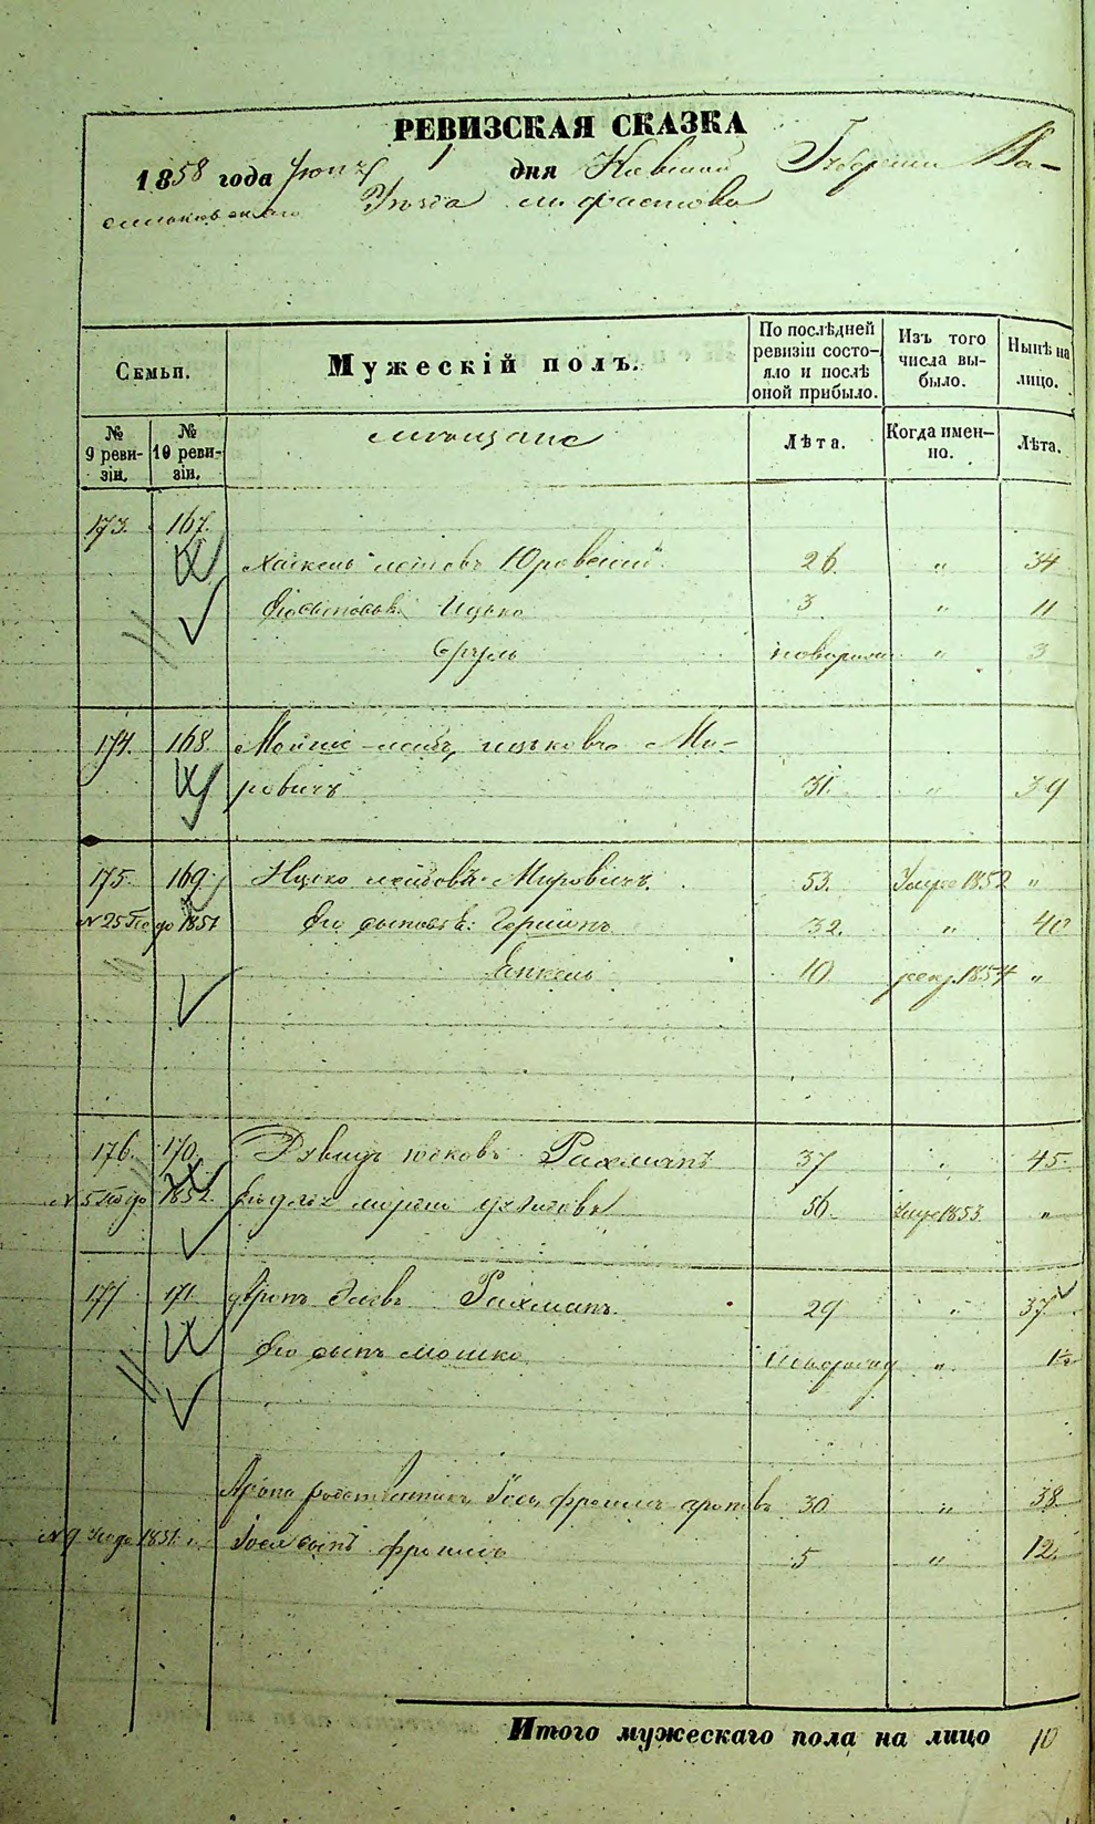 РЕВИЗСКАЯ СКАЗКА
1858 года Июня 1 дня Кіевской Губерніи Ва-
сильковскаго Уѣзда м. Фастова
Семьи.
Мужескій полъ.
По послѣдней ревизіи состо-яло и послѣ оной прибыло.
Изъ того числа вы-было.
Нынѣ на лицо.
№ 9 реви-зіи.
№ 10 реви-зіи.
мѣщане
Лѣта.
Когда имен-но.
Лѣта.
173. 167.
Хаскель Лейбовъ Юровскій 26. " 34
Его сыновья Ицько 3 " 11
Сруль новорожд. " 3
174. 168. Мойше-Лейбъ Ицьковъ Ми-
ровичъ 31. " 39
175. 169. Ицко Лейбовъ Мировичъ. 53. Умре 1852 "
№ 25 по до 1851 Его сыновья: Гершонъ 32. " 40
Янкель 10 рекр. 1854 "
176. 170. Дувидъ Юсковъ Рахманъ 37 " 45.
№ 5 по до 1852. 56. Умре 1853 "
177 171 Аронъ Рахманъ. 29 " 37
Его сынъ Мошко новорожд " 1½
Арона родственникъ Іось Фроимъ Ароновъ 30 " 38
№ 9 по до 1851 Іося сынъ Фроимъ 5 " 12.
Итого мужескаго пола на лицо 10